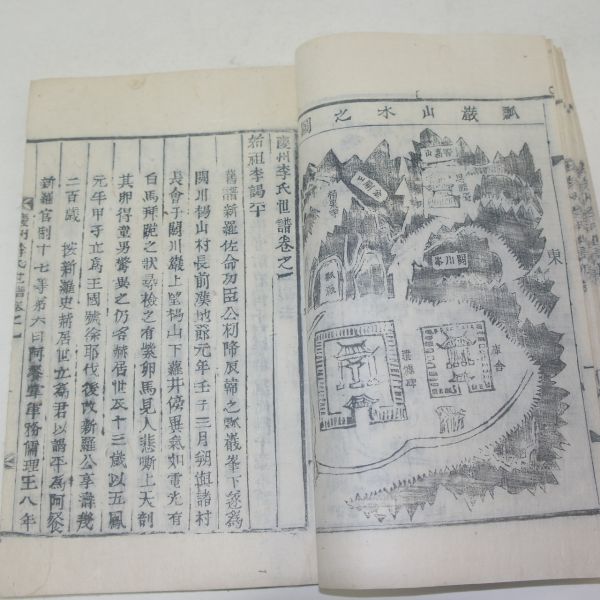 瓢巖山水之圖
東
金剛山
閼川峯
瓢巖
遺墟碑
庫舍
慶州李氏世譜卷之一
始祖李謁平
舊譜新羅佐命功臣公初降辰韓之瓢巖峯下遂爲
閼川楊山村長前漢地節元年壬子三月朔與諸村
長會于閼川巖上望楊山下蘿井傍異氣如電光有
白馬拜跪之狀尋檢之有紫卵馬見人悲嘶上天剖
其卵得童男驚異之仍名赫居世及十三歲以五鳳
元年甲子立爲王國號徐耶伐後改新羅公享壽幾
二百歲 按新羅史赫居世立爲君以謁平爲阿飡
新羅官制十七等第六曰阿飡掌軍務儒理王八年
慶州李氏世譜卷之一